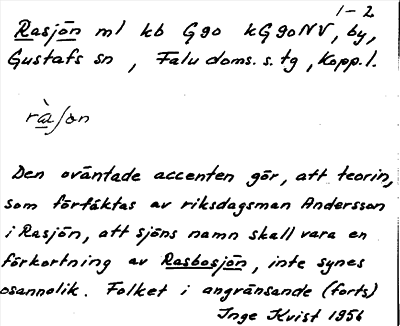 1-2
Rasjön ml kb G90 kG90NV, by,
Gustafs sn, Falu doms.s.tg, Kopp.l.
rà̠ʃon
Den oväntade accenten gör, att teorin,
som förfäktas av riksdagsman Andersson
i Rasjön, att sjöns namn skall vara en
förkortning av Rasbosjön, inte synes
osannolik. Folket i angränsande (forts)
Inge Kvist 1956